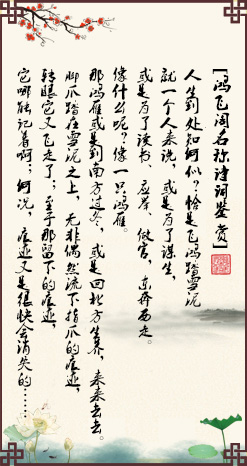 [鸿飞阁名称诗词鉴赏]
人生到处知何似？恰是飞鸿踏雪泥
就一个人来说，或是为了谋生，
或是为了读书、应举、做官，东奔西走。
像什么呢？像一只鸿雁。
那鸿雁或是到南方过冬，或是回北方生养，来来去去。
脚爪踏在雪泥之上，无非偶然流下指爪的痕迹，
转眼它又飞走了；至于那留下的痕迹，
它哪能记着啊；何况，痕迹又是很快会消失的……